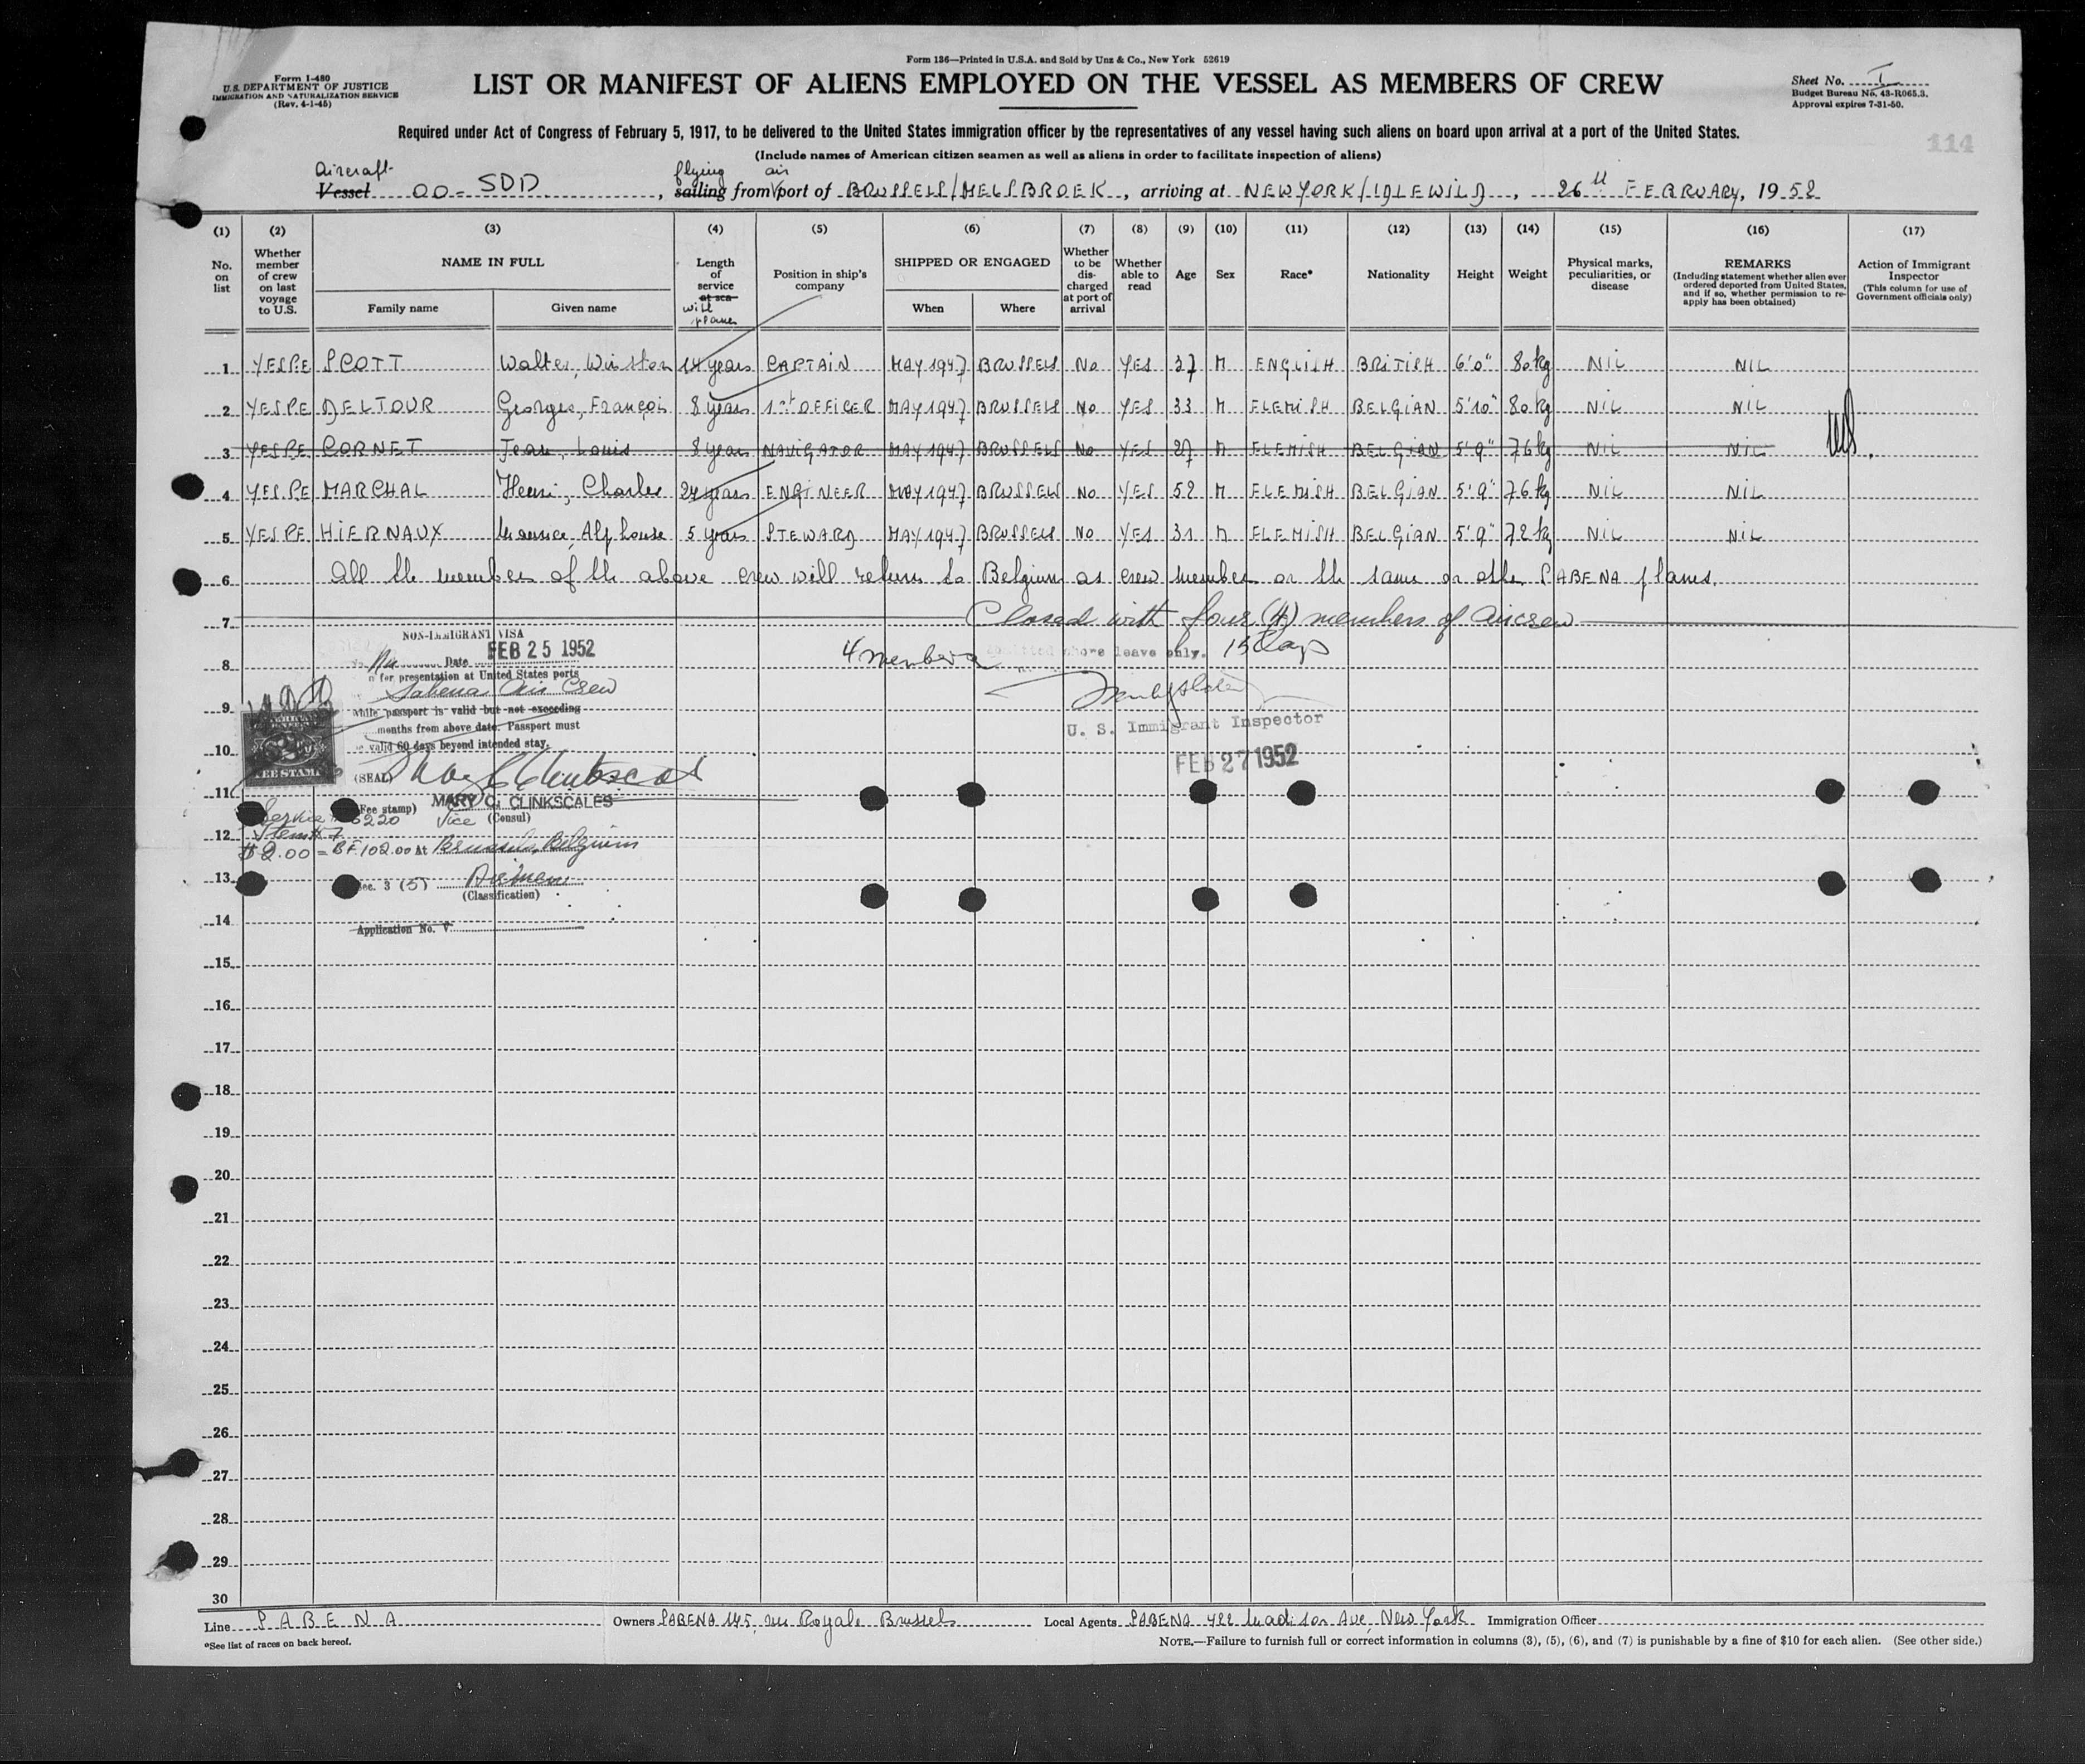 Form 136—Printed in U.S.A. and Sold by Unz & Co., New York 52619
Form I-480
U.S. DEPARTMENT OF JUSTICE
IMMIGRATION AND NATURALIZATION SERVICE
(Rev. 4-1-45)
LIST OR MANIFEST OF ALIENS EMPLOYED ON THE VESSEL AS MEMBERS OF CREW
Sheet No. I
Budget Bureau No. 43-R065.3.
Approval expires 7-31-50.
Required under Act of Congress of February 5, 1917, to be delivered to the United States immigration officer by the representatives of any vessel having such aliens on board upon arrival at a port of the United States.
114
(Include names of American citizen seamen as well as aliens in order to facilitate inspection of aliens)
Aircraft flying air
Vessel OO-SDD, sailing from port of BRUSSELS/MELSBROEK, arriving at NEW YORK/IDLEWILD, 26th FEBRUARY, 1952
(1) (2) (3) (4) (5) (6) (7) (8) (9) (10) (11) (12) (13) (14) (15) (16) (17)
No. on list
Whether member of crew on last voyage to U.S.
NAME IN FULL
Family name
Given name
Length of service at sea
with planes
Position in ship's company
SHIPPED OR ENGAGED
When
Where
Whether to be discharged at port of arrival
Whether able to read
Age
Sex
Race*
Nationality
Height
Weight
Physical marks, peculiarities, or disease
REMARKS
(Including statement whether alien ever ordered deported from United States, and if so, whether permission to re-apply has been obtained)
Action of Immigrant Inspector
(This column for use of Government officials only)
1 YES PE SCOTT Walter, Winston 14 years CAPTAIN MAY 1947 BRUSSELS No YES 37 M ENGLISH BRITISH 6'0" 80kg NIL NIL
2 YES PE DELTOUR Georges, François 8 years 1st OFFICER MAY 1947 BRUSSELS NO YES 33 M FLEMISH BELGIAN 5'10" 80kg NIL NIL
3 YES PE CORNET Jean, Louis 8 years NAVIGATOR MAY 1947 BRUSSELS No YES 27 M FLEMISH BELGIAN 5'9" 76kg NIL NIL
4 YES PE MARCHAL Henri, Charles 24 years ENGINEER MAY 1947 BRUSSELS NO YES 52 M FLEMISH BELGIAN 5'9" 76kg NIL NIL
5 YES PE HIERNAUX Maurice, Alphonse 5 years STEWARD MAY 1947 BRUSSELS NO YES 31 M FLEMISH BELGIAN 5'9" 72kg NIL NIL
6 All the members of the above crew will return to Belgium as crew members on the same or other SABENA planes.
7 Closed with four (4) members of Aircrew
NON-IMMIGRANT VISA
Date FEB 25 1952
8 4 members admitted shore leave only. 15 days
for presentation at United States ports
Sabena Air Crew
9 while passport is valid but not exceeding
months from above date. Passport must
U. S. Immigrant Inspector
be valid 60 days beyond intended stay.
10
FEB 27 1952
FEE STAMP
(SEAL) Mary C Clinkscales
11
MARY C. CLINKSCALES
(Fee stamp) Vice (Consul)
Service # 6220
12
Item # 7
$2.00 = BF 102.00 At Brussels, Belgium
13
Sec. 3 (5) Airman
(Classification)
14
Application No. V
15
16
17
18
19
20
21
22
23
24
25
26
27
28
29
30
Line SABENA Owners SABENA 145, rue Royale Brussels Local Agents SABENA 422 Madison Ave, New York Immigration Officer
*See list of races on back hereof.
NOTE.—Failure to furnish full or correct information in columns (3), (5), (6), and (7) is punishable by a fine of $10 for each alien. (See other side.)